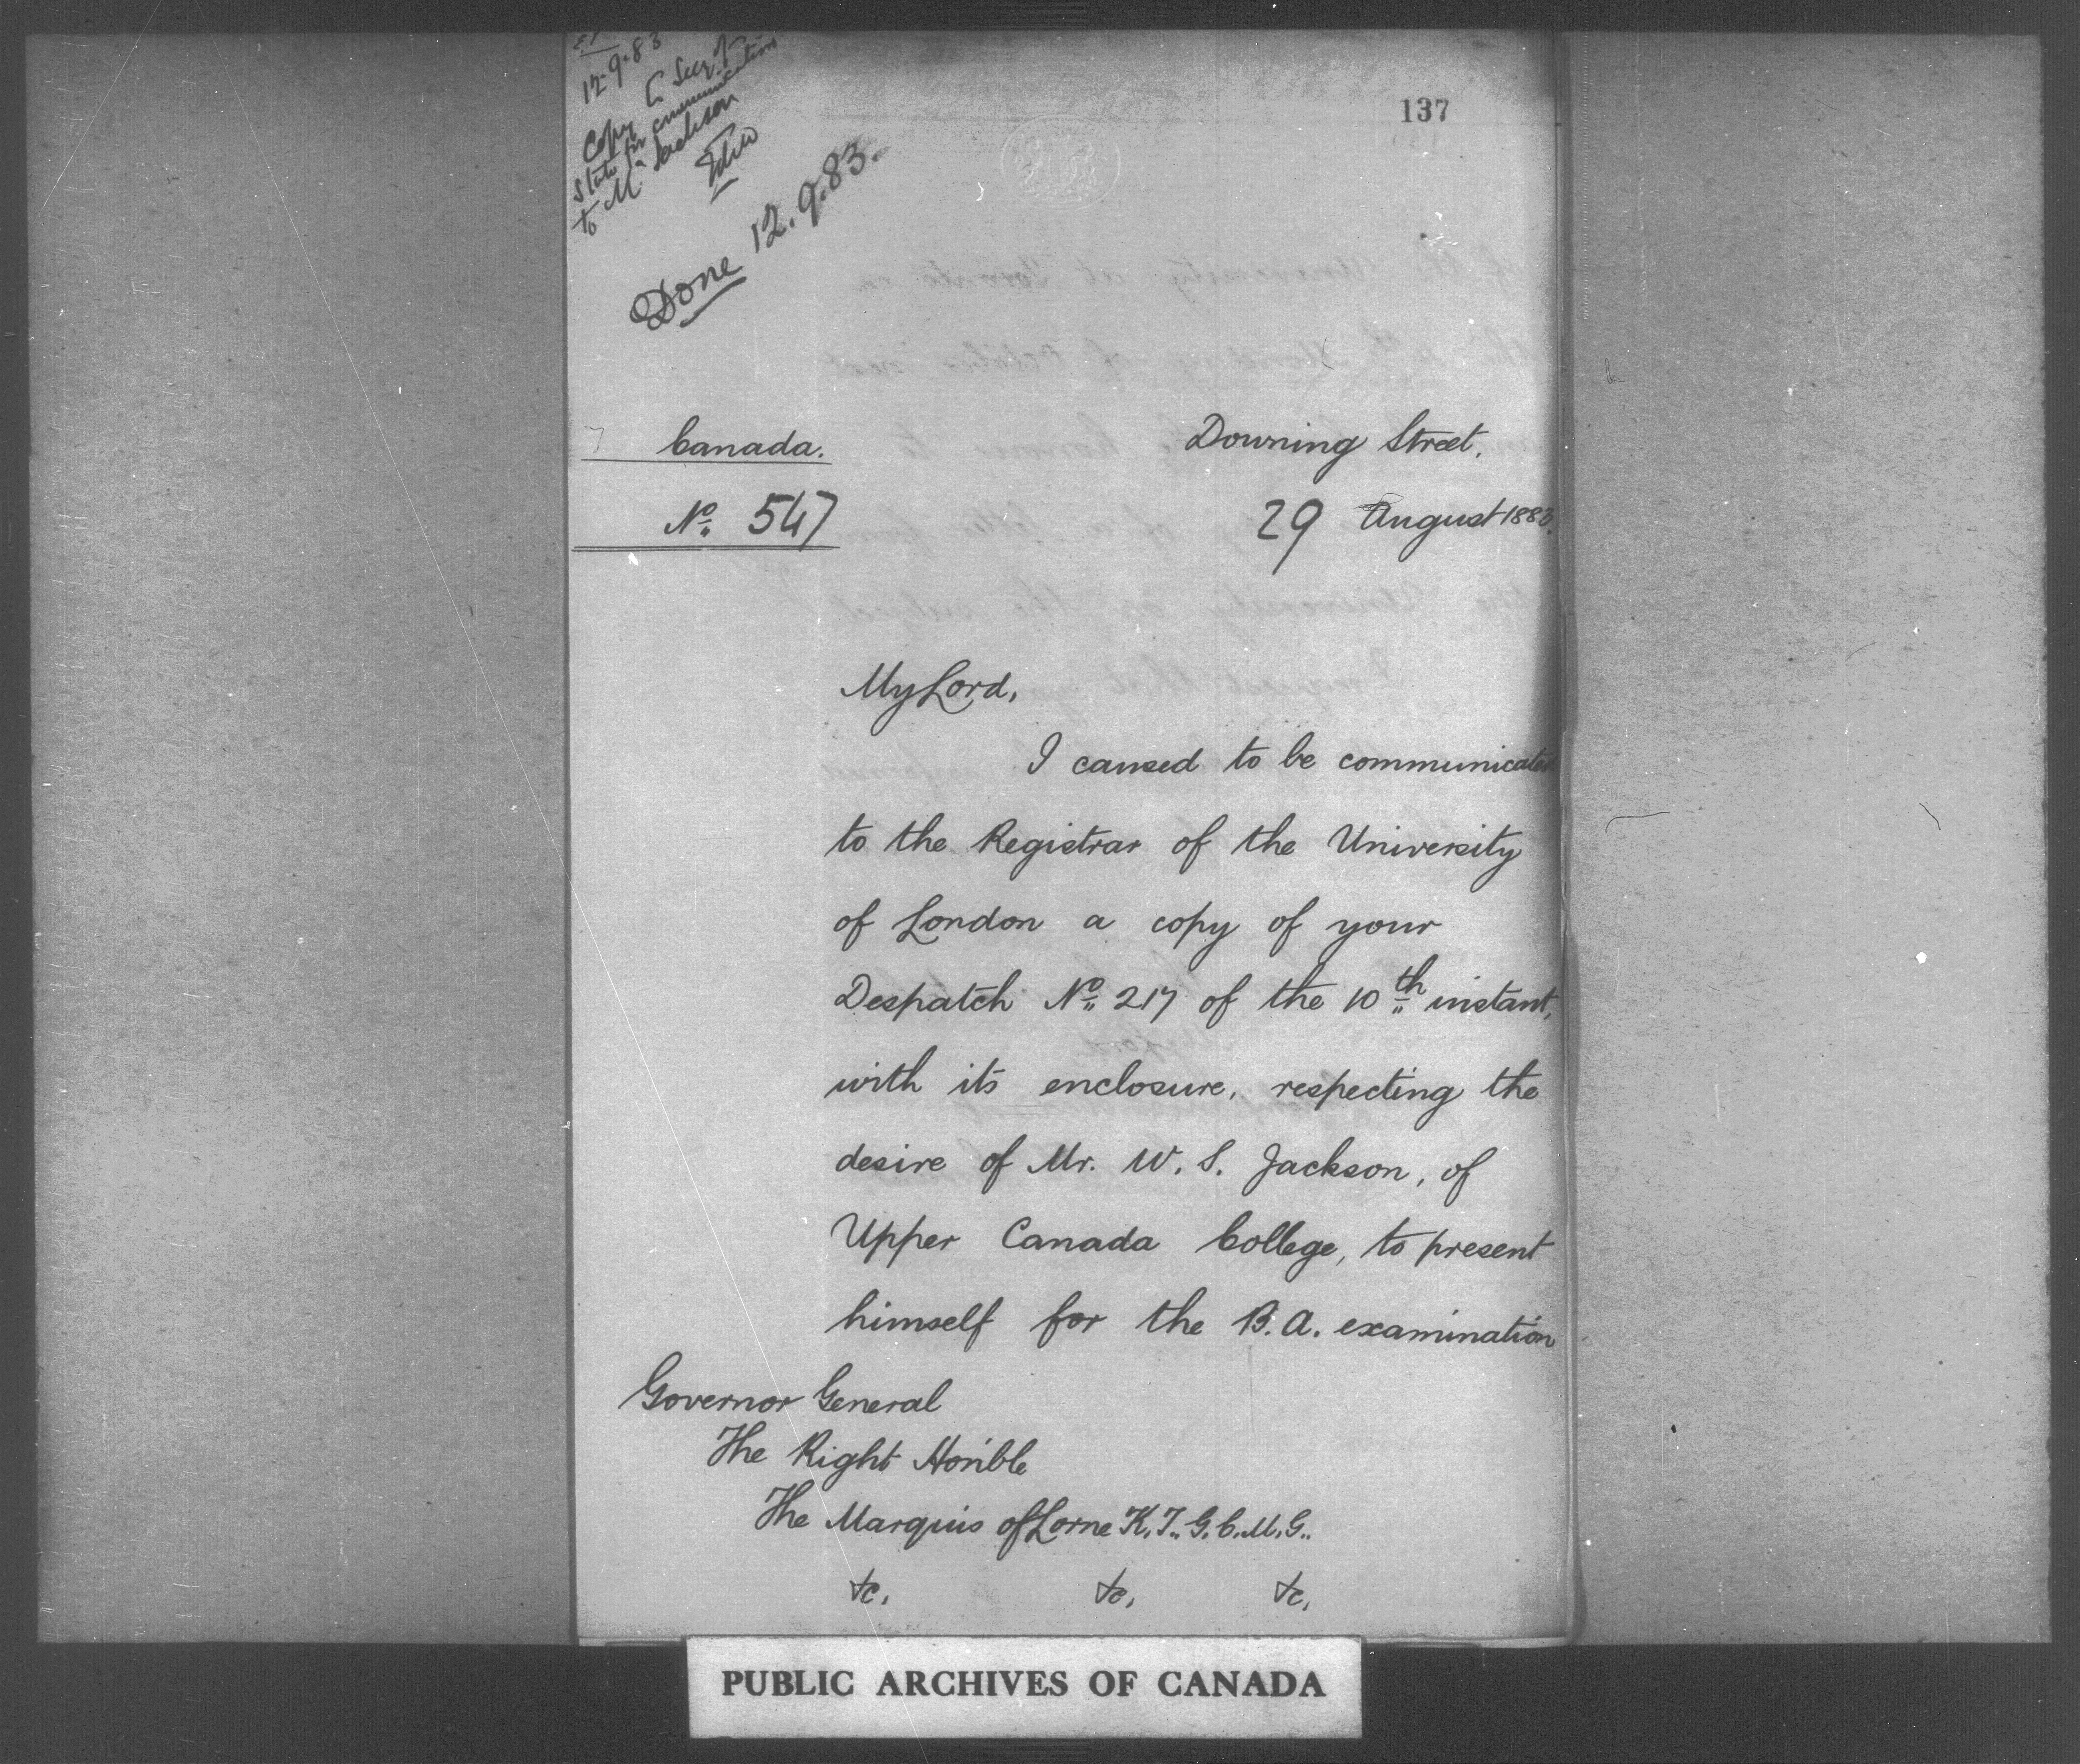 12.9.83
Copy C. Secy. of
State for communication
to Mr. Jackson
Done 12.9.83.
137
Canada.
No. 547
Downing Street,
29 August 1883.
My Lord,
I caused to be communicated
to the Registrar of the University
of London a copy of your
Despatch No. 217 of the 10th instant,
with its enclosure, respecting the
desire of Mr. W. S. Jackson, of
Upper Canada College, to present
himself for the B.A. examination
Governor General
The Right Honble
The Marquis of Lorne K.T., G.C.M.G..
&c. &c. &c.
PUBLIC ARCHIVES OF CANADA